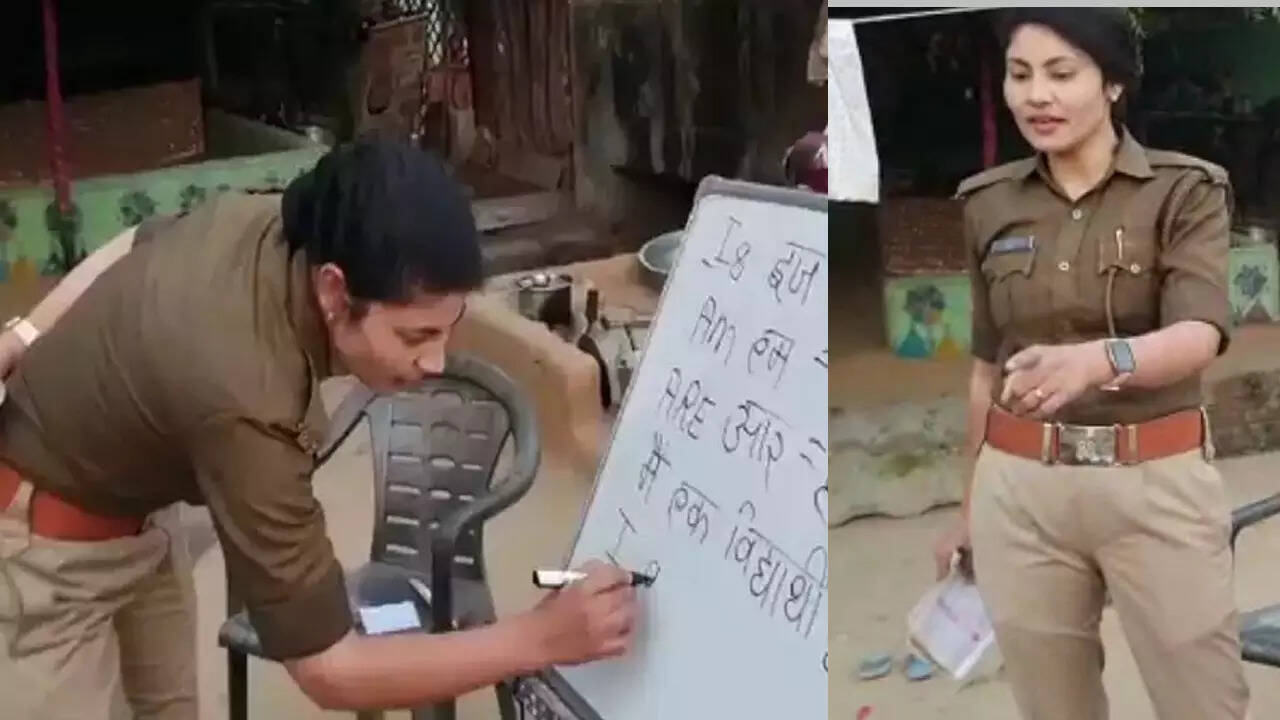 Is इज
Am एम =
ARE आर =
मैं एक विद्यार्थी
I a